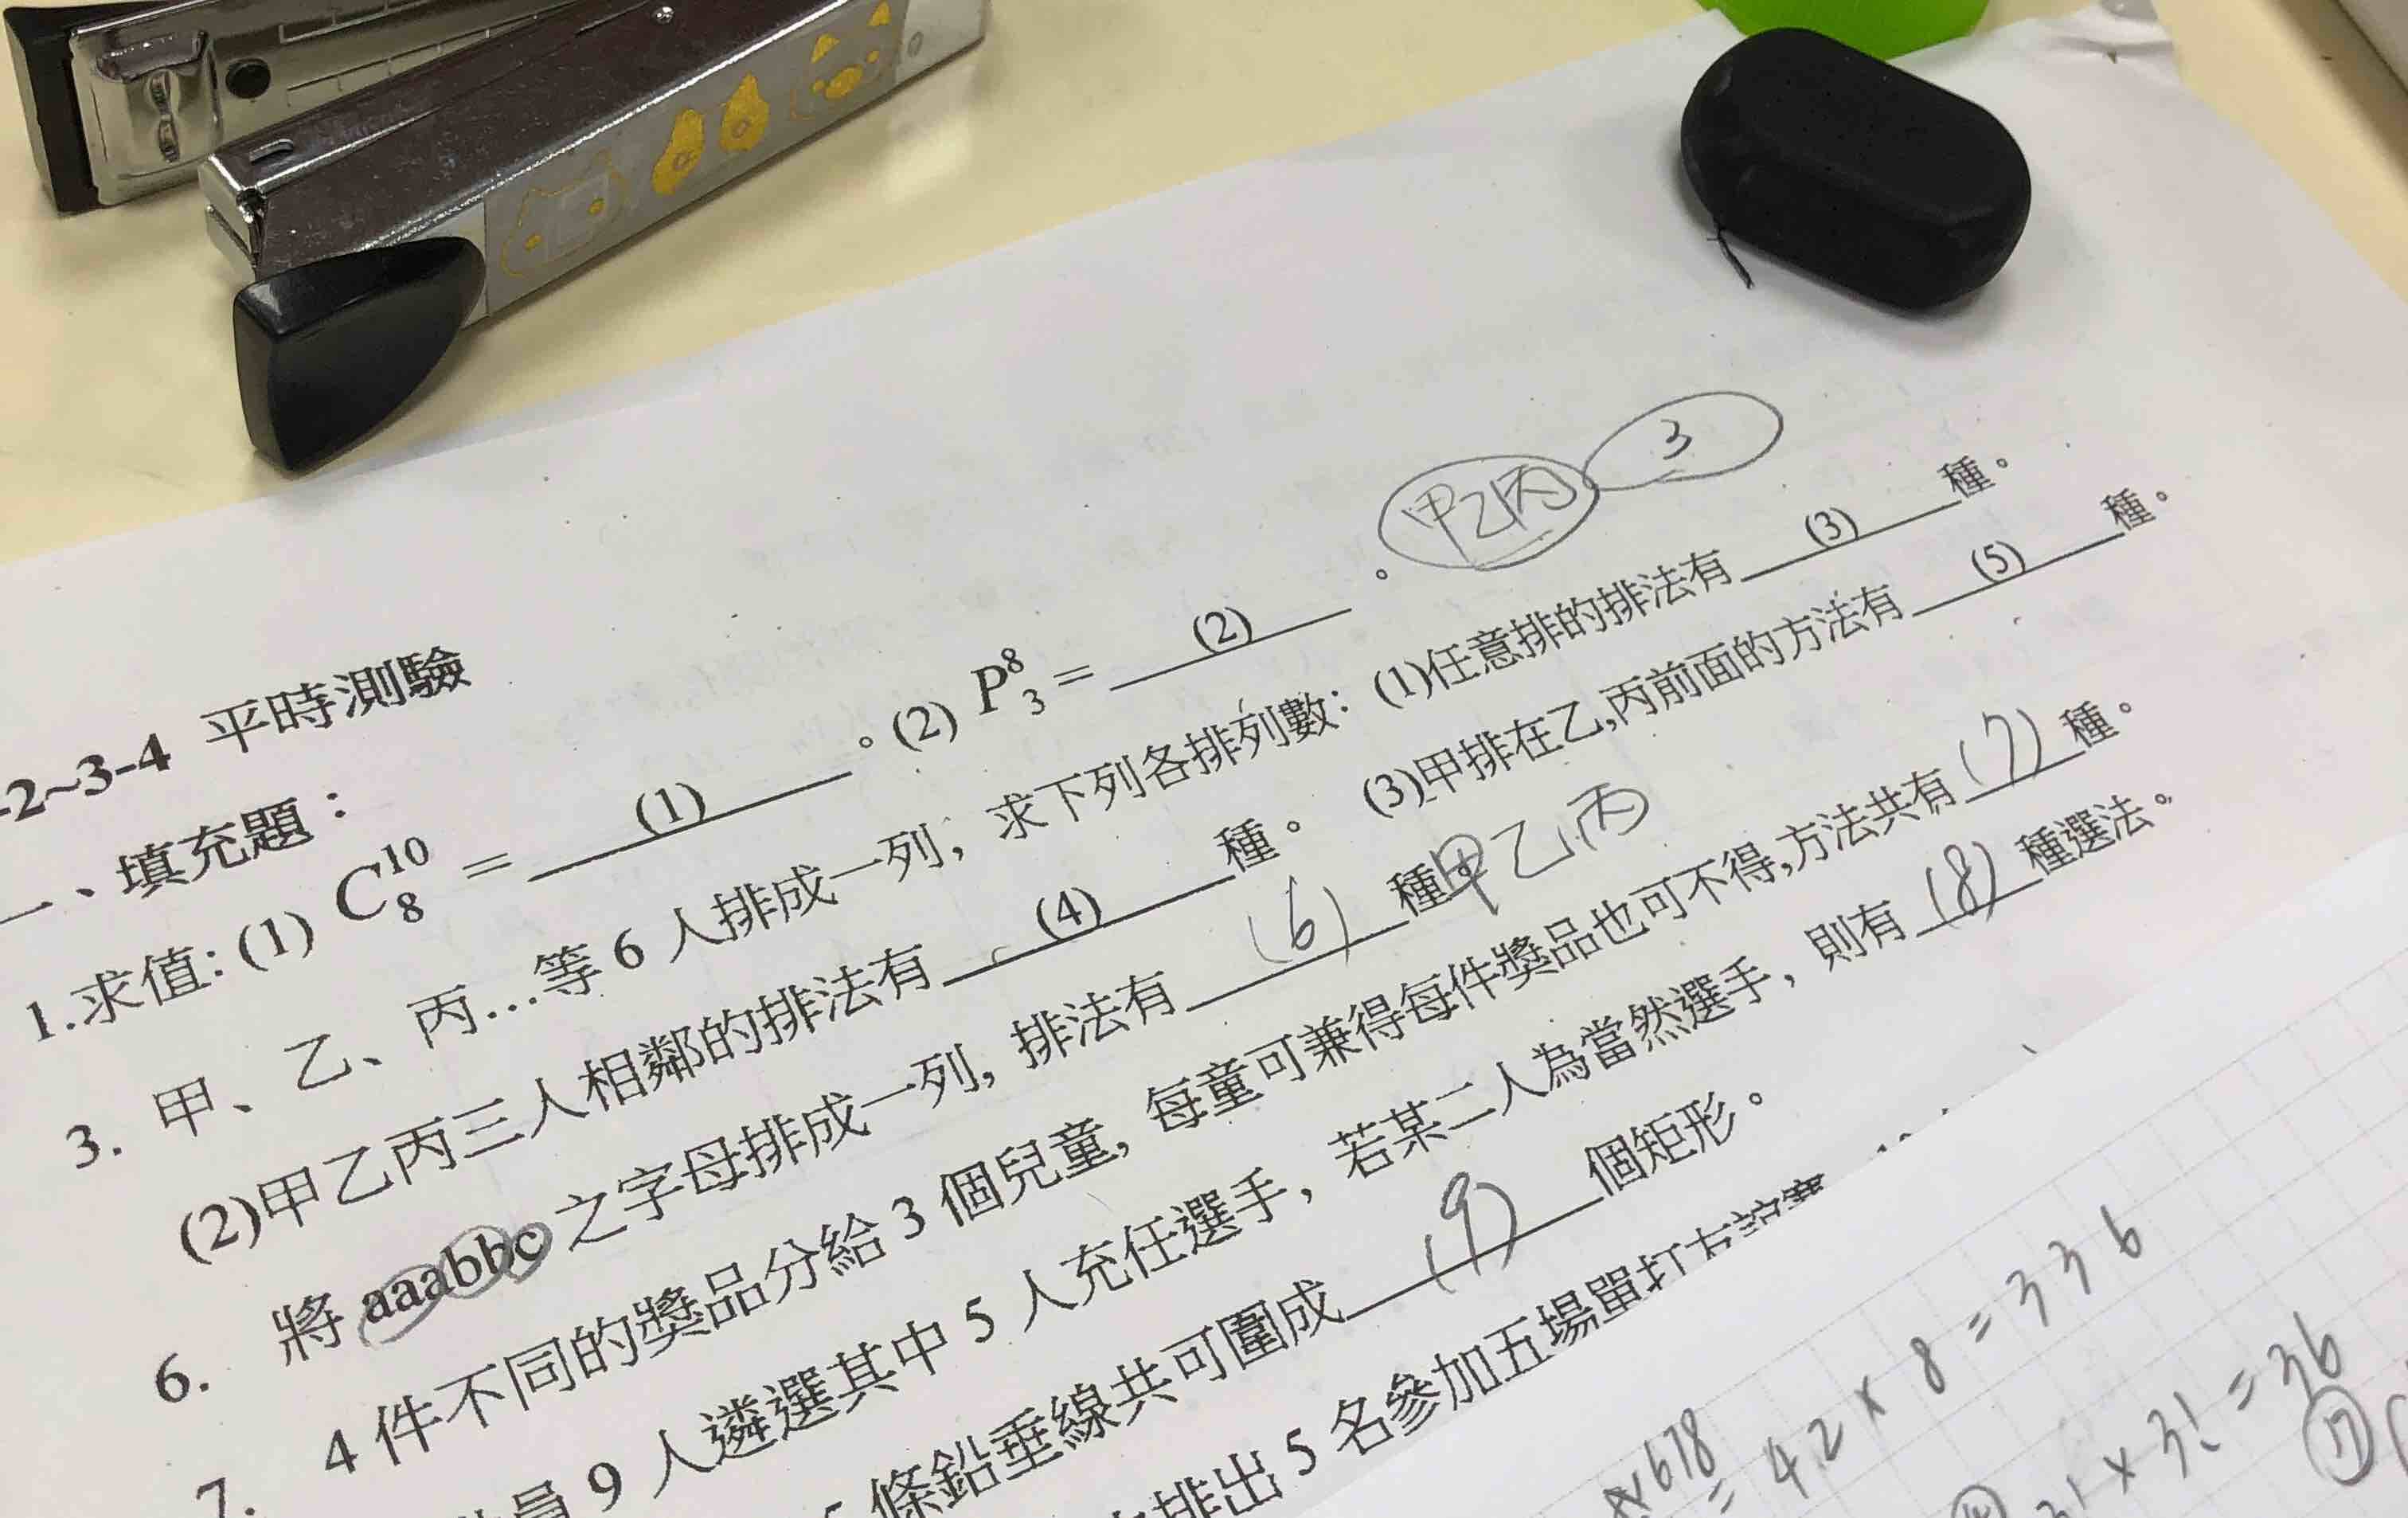 甲乙丙 3
-2~3-4 平時測驗
一、填充題：
1.求值: (1) C 10 8 = (1) 。(2) P 8 3 = (2) 。
3. 甲、乙、丙…等 6 人排成一列，求下列各排列數：(1)任意排的排法有 (3) 種。
(2)甲乙丙三人相鄰的排法有 (4) 種。 (3)甲排在乙,丙前面的方法有 (5) 種。
甲乙丙
6. 將 aaabbc 之字母排成一列，排法有 (6) 種
7. 4 件不同的獎品分給 3 個兒童，每童可兼得每件獎品也可不得,方法共有 (7) 種。
員 9 人遴選其中 5 人充任選手，若某二人為當然選手，則有 (8) 種選法。
條鉛垂線共可圍成 (9) 個矩形。
排出 5 名參加五場單打友誼賽
678
= 42 × 8 = 336
3! × 3! = 36
(7)